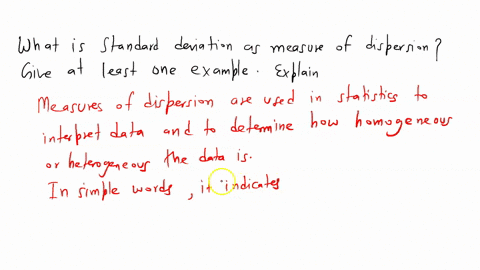 What is Standard deviation as measure of dispersion?
Give at least one example. Explain
Measures of dispersion are used in statistics to
interpret data and to determine how homogeneous
or heterogeneous the data is.
In simple words, it indicates